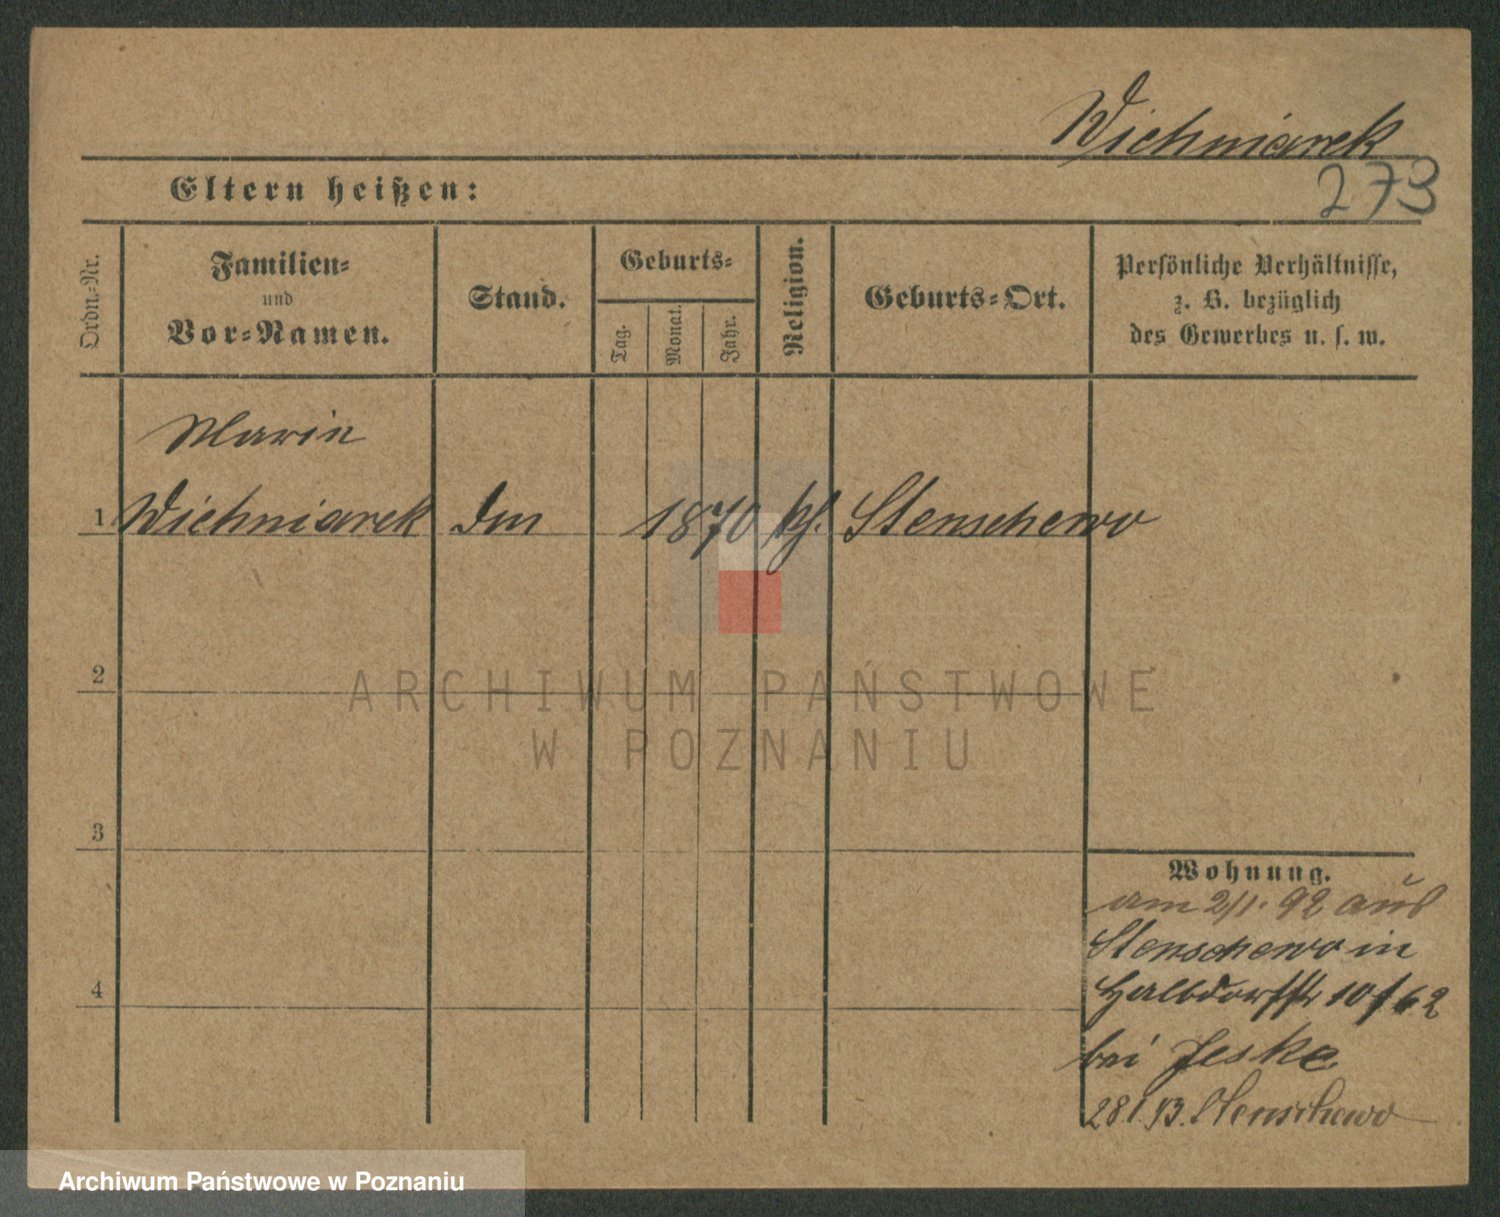 Wichniarek
273
Eltern heißen:
Ordn.-Nr.
Familien-
und
Vor-Namen.
Stand.
Geburts-
Tag.
Monat.
Jahr.
Religion.
Geburts-Ort.
Persönliche Verhältnisse,
z. B. bezüglich
des Gewerbes u. s. w.
Marie
1 Wichniarek Dm 1870 kh. Stenschewo
2
3
4
Wohnung.
am 2/1. 92 aus
Stenschewo in
Halbdorfstr 10
bei Jeske
28.1.93. Stenschewo
ARCHIWUM PAŃSTWOWE
W POZNANIU
Archiwum Państwowe w Poznaniu